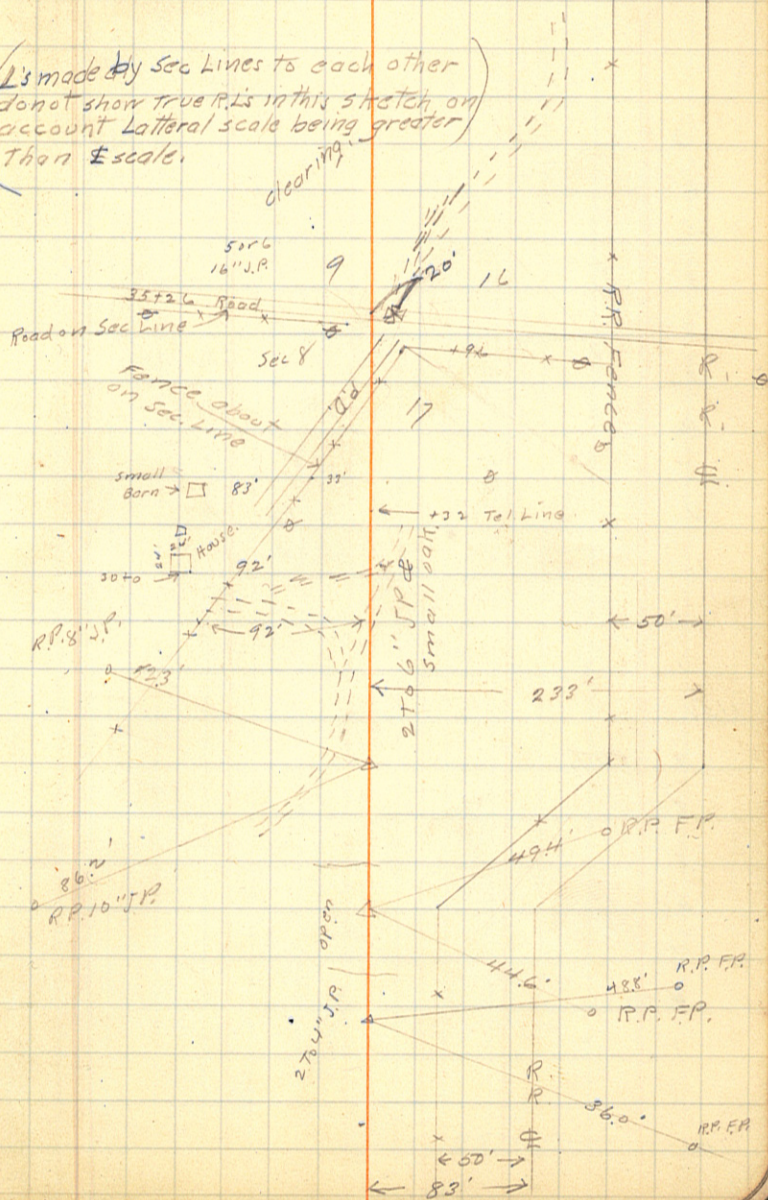 L's made by Sec Lines to each other
do not show True R.L's in this sketch on
account Latteral scale being greater
Than ⅊ scale.
clearing
5 or 6
16" J.P.
9
20'
16
35+26 Road
Road on Sec Line
Sec 8
+96
R.R. Fence
R.
R.
W
Fence about
on Sec. Line
R'd
17
Small
Barn
83'
33'
+32 Tel. Line
House
24'
30+0
92'
92'
2 To 6" J P &
small oak
50'
R.P. 8" J.P.
233'
R.P. F.P.
49.4'
86.2'
R.P. 10" J.P.
open
44.6'
R.P. F.P.
48.8'
R.P. F.P.
2 To 4" J.P.
R.
R.
W
36.0'
R.P. F.P.
50'
83'